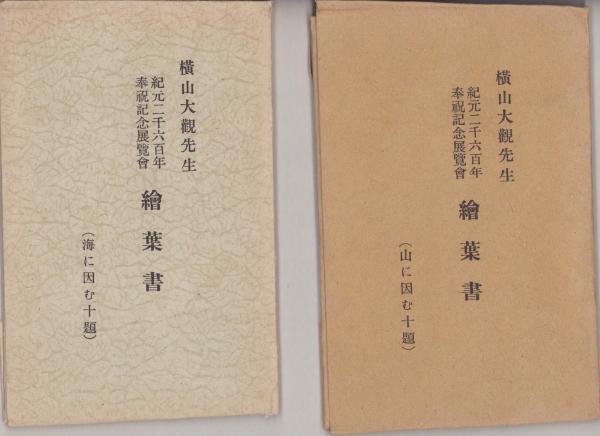 横山大觀先生
紀元二千六百年
奉祝記念展覽會
繪葉書
(海に因む十題)
横山大觀先生
紀元二千六百年
奉祝記念展覽會
繪葉書
(山に因む十題)